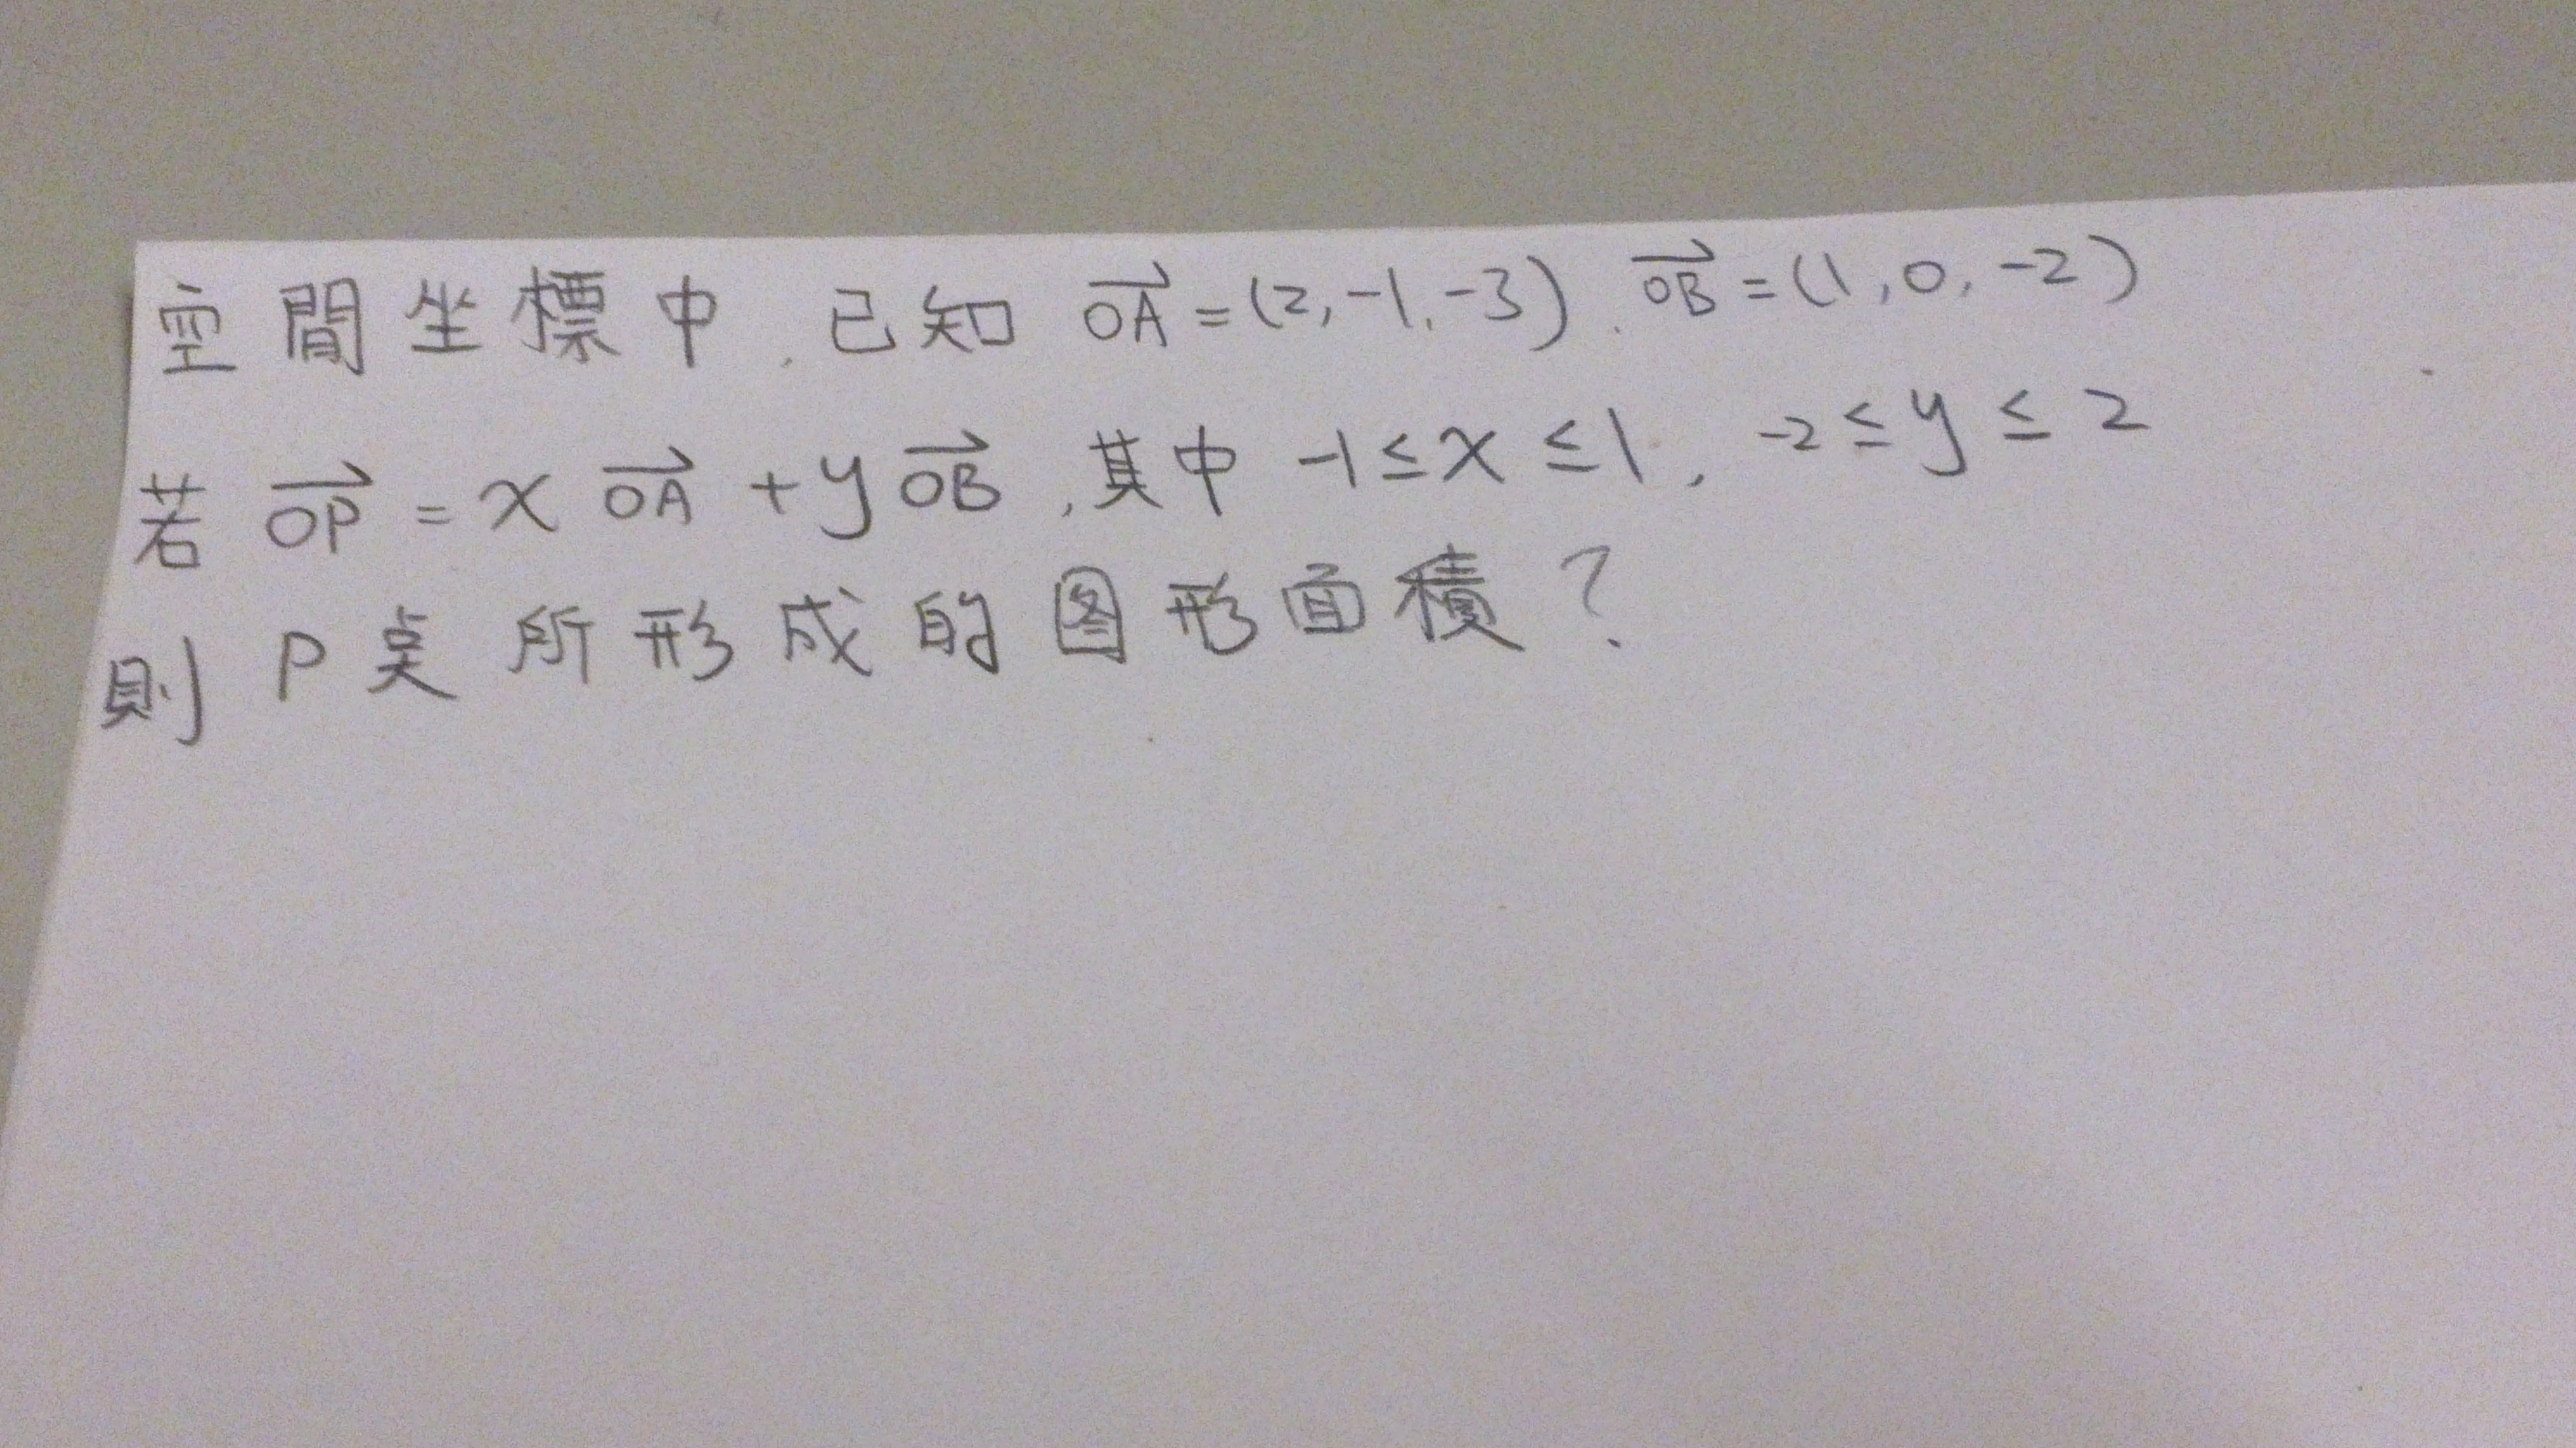 空間坐標中,已知 $\overrightarrow{OA}$ = (2, -1, -3), $\overrightarrow{OB}$ = (1, 0, -2)
若 $\overrightarrow{OP}$ = x $\overrightarrow{OA}$ + y $\overrightarrow{OB}$, 其中 -1 ≤ x ≤ 1, -2 ≤ y ≤ 2
則 P 點所形成的图形面積?